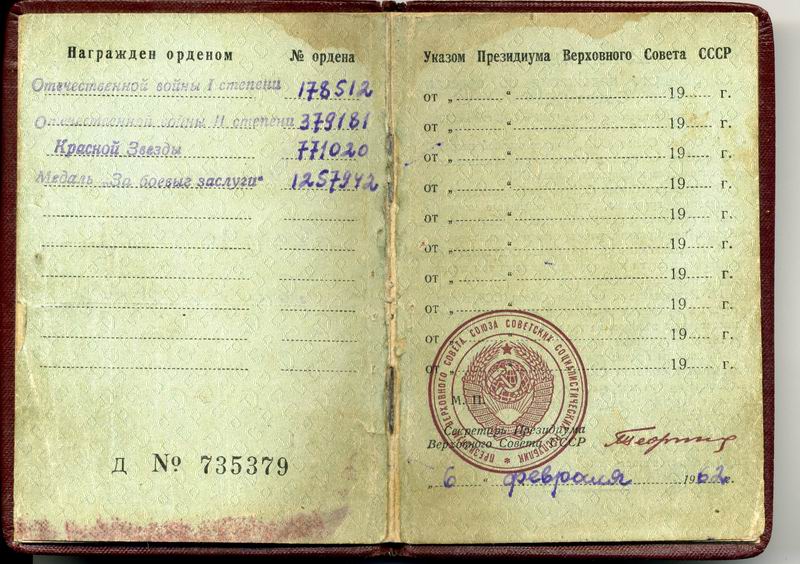 Награжден орденом № ордена
Отечественной войны I степени 178512
Отечественной войны II степени 379181
Красной Звезды 771020
Медаль „За боевые заслуги“ 1257942
Д № 735379
Указом Президиума Верховного Совета СССР
от „ “ 19 г.
от „ “ 19 г.
от „ “ 19 г.
от „ “ 19 г.
от „ “ 19 г.
от „ “ 19 г.
от „ “ 19 г.
от „ “ 19 г.
от „ “ 19 г.
от „ “ 19 г.
ПРЕЗИДИУМ ВЕРХОВНОГО СОВЕТА СОЮЗА СОВЕТСКИХ СОЦИАЛИСТИЧЕСКИХ РЕСПУБЛИК
М. П.
Секретарь Президиума
Верховного Совета СССР
„ 6 “ февраля 1962 г.